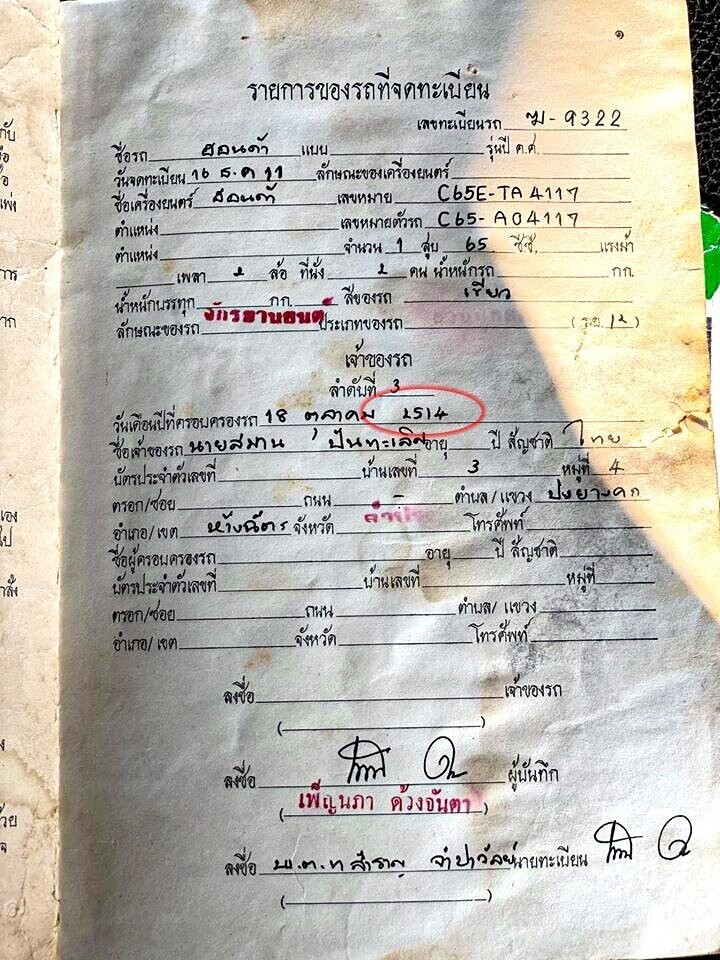 ๑
รายการของรถที่จดทะเบียน
เลขทะเบียนรถ ฆ-9322
ชื่อรถ ฮอนด้า แบบ รุ่นปี ค.ศ.
วันจดทะเบียน 16 ธ.ค 11 ลักษณะของเครื่องยนต์
ชื่อเครื่องยนต์ ฮอนด้า เลขหมาย C65E-TA4117
ตำแหน่ง เลขหมายตัวรถ C65-A04117
ตำแหน่ง จำนวน 1 สูบ 65 ซีซี. แรงม้า
เพลา 2 ล้อ ที่นั่ง 2 คน น้ำหนักรถ กก.
น้ำหนักบรรทุก กก. สีของรถ เขียว
ลักษณะของรถ จักรยานยนต์ ประเภทของรถ (ร.ย. 12)
เจ้าของรถ
ลำดับที่ 3
วันเดือนปีที่ครอบครองรถ 18 ตุลาคม 2514
ชื่อเจ้าของรถ นายสมาน ปันทะเลิศ อายุ ปี สัญชาติ ไทย
บัตรประจำตัวเลขที่ บ้านเลขที่ 3 หมู่ที่ 4
ตรอก/ซอย ถนน - ตำบล/แขวง ปงยางคก
อำเภอ/เขต ห้างฉัตร จังหวัด โทรศัพท์
ชื่อผู้ครอบครองรถ อายุ ปี สัญชาติ
บัตรประจำตัวเลขที่ บ้านเลขที่ หมู่ที่
ตรอก/ซอย ถนน ตำบล/แขวง
อำเภอ/เขต จังหวัด โทรศัพท์
ลงชื่อ เจ้าของรถ
( )
ลงชื่อ ผู้บันทึก
(เพ็ญนภา ด้วงจันตา)
ลงชื่อ พ.ต.ท สำราญ จำปาวัลย์ นายทะเบียน
( )